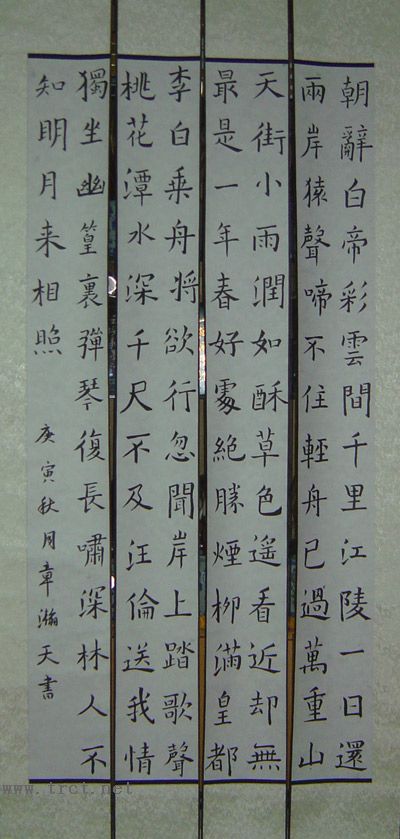 朝辭白帝彩雲間千里江陵一日還
兩岸猿聲啼不住輕舟已過萬重山
天街小雨潤如酥草色遥看近却無
最是一年春好處絶勝煙柳滿皇都
李白乗舟將欲行忽聞岸上踏歌聲
桃花潭水深千尺不及汪倫送我情
獨坐幽篁裏彈琴復長嘯深林人不
知明月来相照
庚寅秋月章瀚天書
www.trct.net